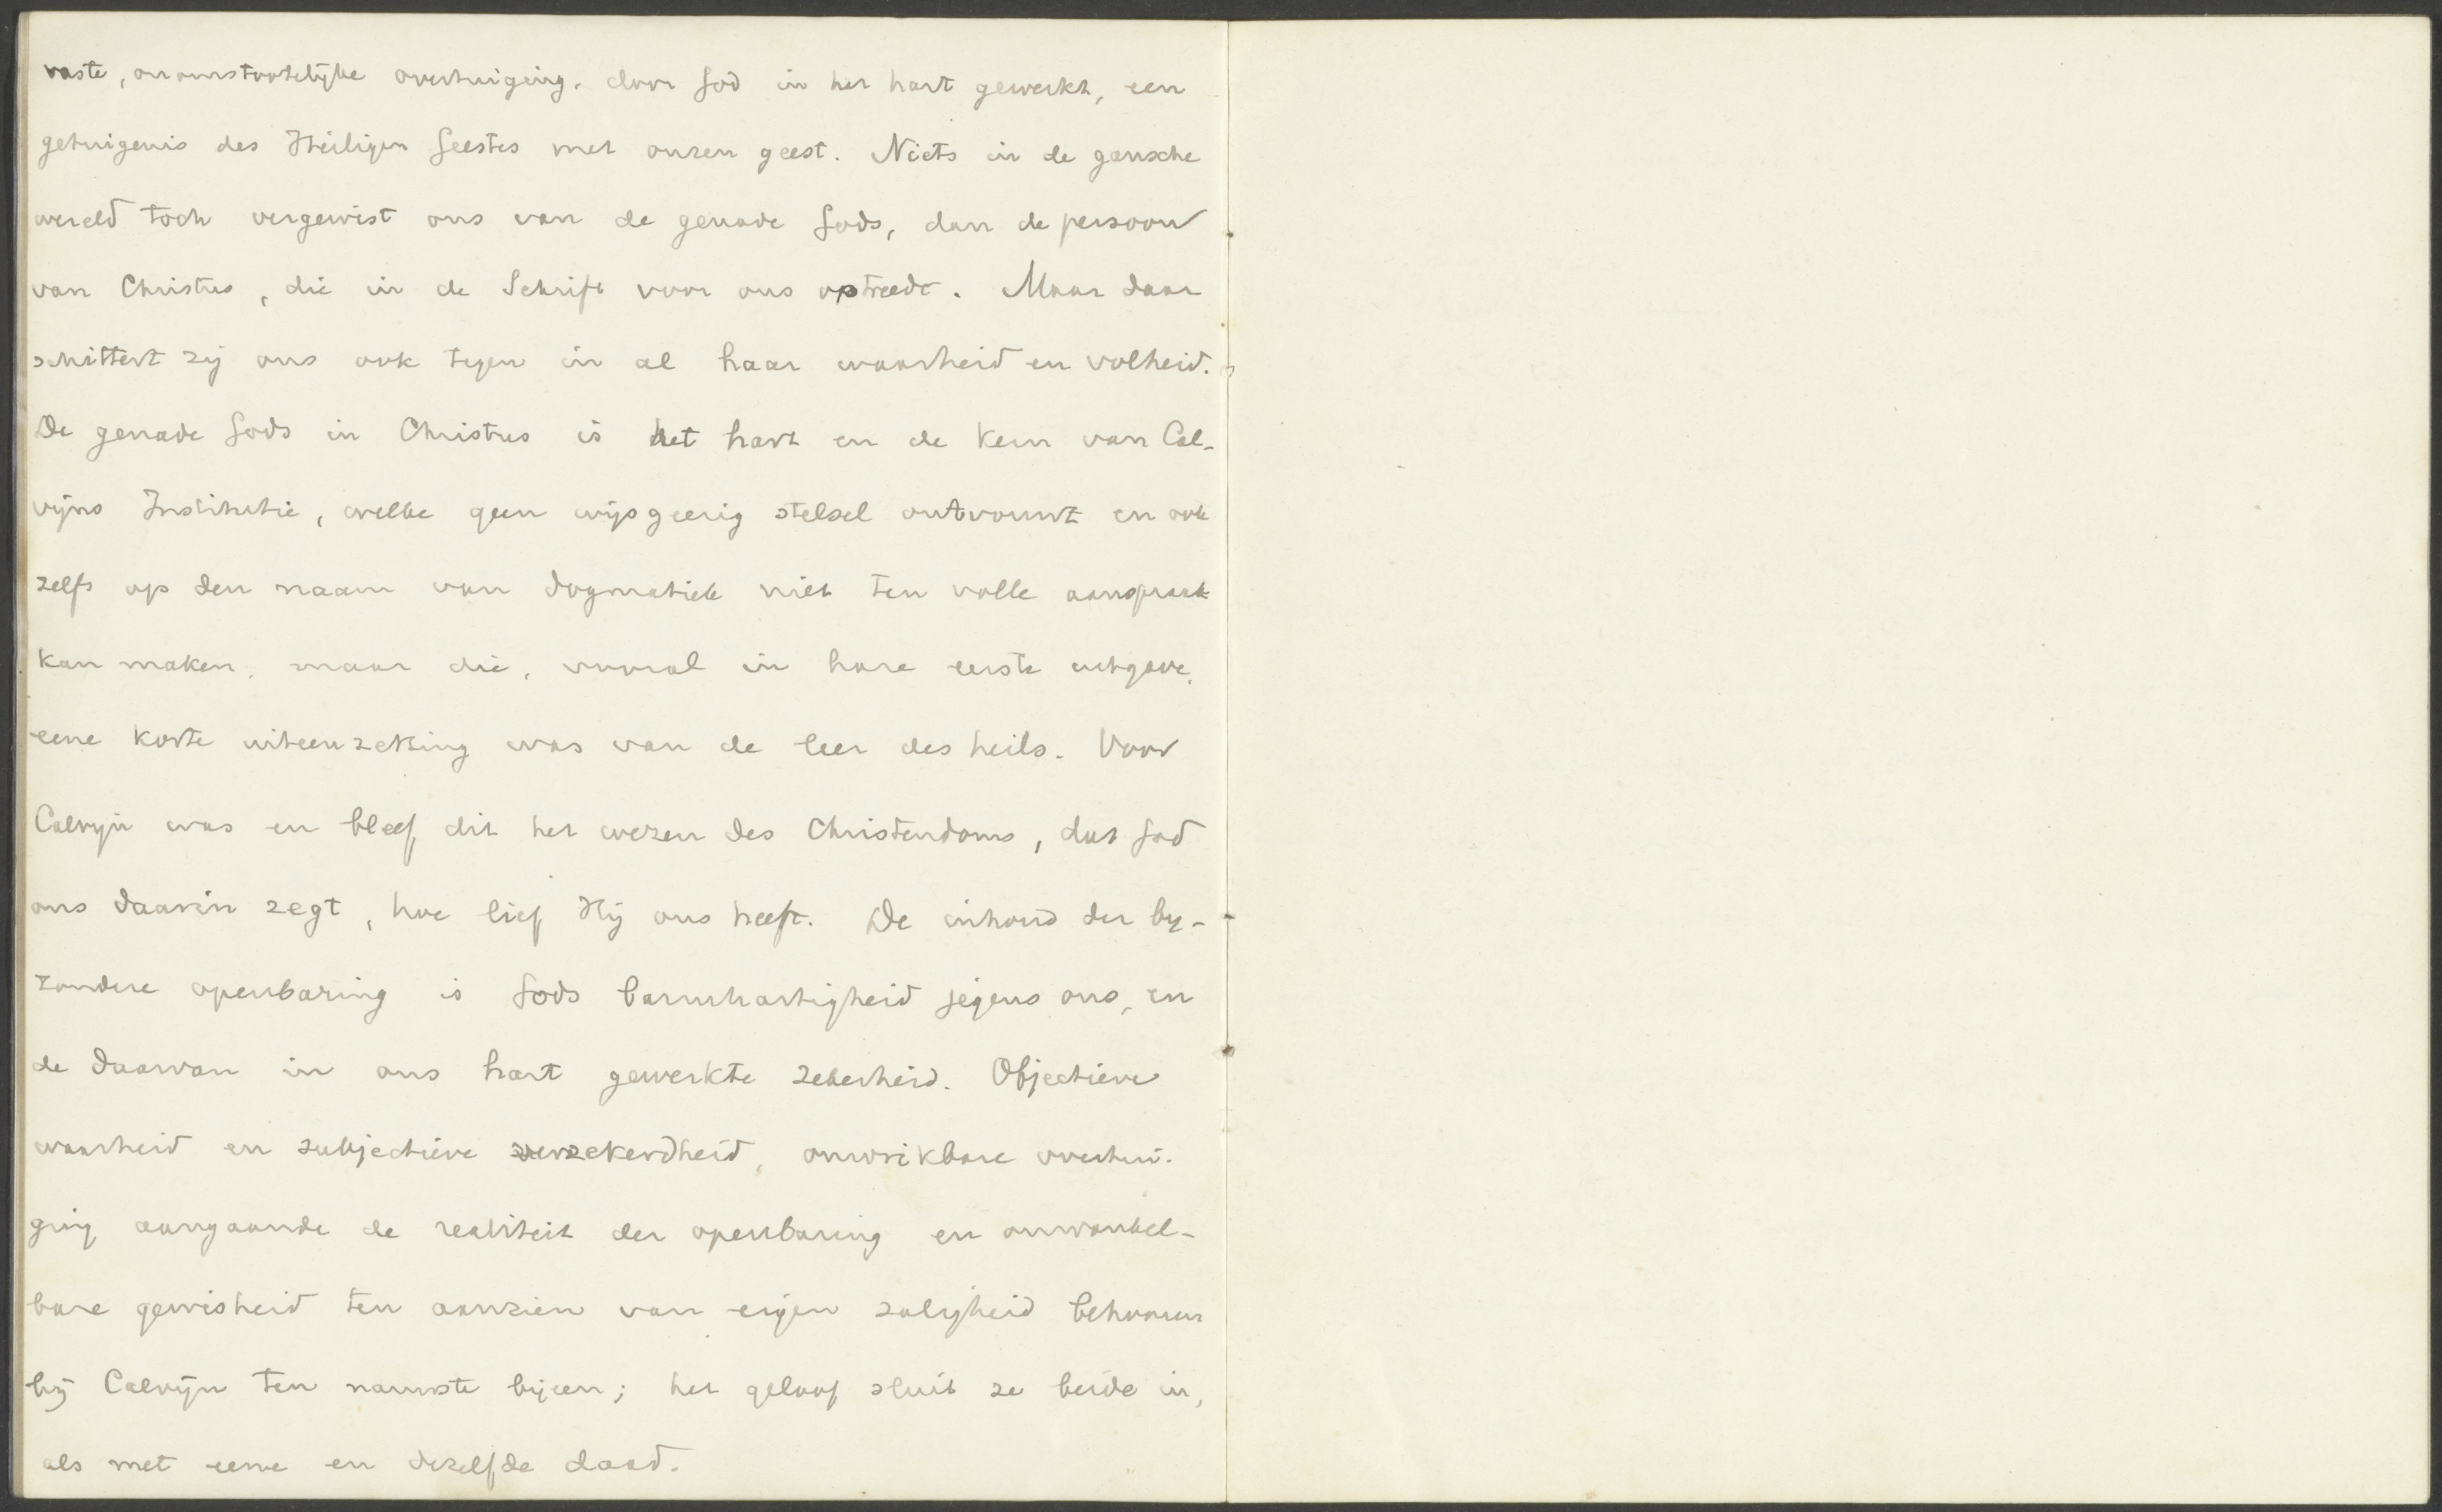 vaste, onomstootelijke overtuiging, door God in het hart gewerkt, een
getuigenis des Heiligen Geestes met onzen geest. Niets in de gansche
wereld toch vergewist ons van de genade Gods, dan de persoon
van Christus, die in de Schrift voor ons optreedt. Maar daar
schittert zij ons ook tegen in al haar waarheid en volheid.
De genade Gods in Christus is het hart en de kern van Cal-
vijns Institutie, welke geen wijsgeerig stelsel ontvouwt en ook
zelfs op den naam van dogmatiek niet ten volle aanspraak
kan maken, maar die, vooral in hare eerste uitgave,
eene korte uiteenzetting was van de leer des heils. Voor
Calvijn was en bleef dit het wezen des Christendoms, dat God
ons daarin zegt, hoe lief Hij ons heeft. De inhoud der bij-
zondere openbaring is Gods barmhartigheid jegens ons, en
de daarvan in ons hart gewerkte zekerheid. Objectieve
waarheid en subjectieve verzekerdheid, onwrikbare overtui-
ging aangaande de realiteit der openbaring en onwankel-
bare gewisheid ten aanzien van eigen zaligheid behooren
bij Calvijn ten nauwste bijeen; het geloof sluit ze beide in,
als met eene en dezelfde daad.